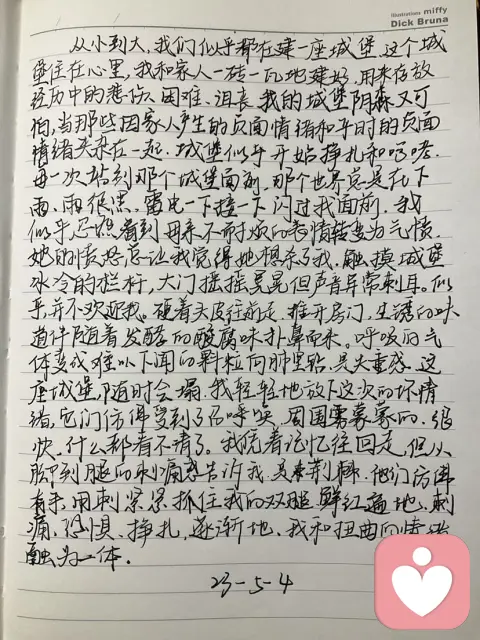 illustrations miffy
Dick Bruna
从小到大,我们似乎都在建一座城堡,这个城
堡住在心里,我和家人一砖一瓦地建好,用来存放
经历中的悲伤、困难、沮丧,我的城堡阴森又可
怕,当那些因家人产生的负面情绪和平时的负面
情绪夹杂在一起,城堡似乎开始挣扎和咆哮。
每一次站到那个城堡面前,那个世界总是在下
雨,雨很黑,雷电一下接一下闪过我面前,我
似乎忽然看到母亲不耐烦的表情转变为气愤,
她的愤怒总让我觉得她想杀了我。触摸城堡
冰冷的栏杆,大门摇摇晃晃但声音异常刺耳。似
乎并不欢迎我。硬着头皮往前走,推开房门,生锈的味
道伴随着发酵的酸腐味扑鼻而来。呼吸的气
体变成难以下咽的颗粒向肺里钻,具失重感,这
座城堡,随时会塌,我轻轻地放下这次的坏情
绪,它们仿佛受到了召呼唤,周围雾蒙蒙的,很
快,什么都看不清了。我凭着记忆往回走,但从
脚到腿的刺痛感告诉我,是荆棘,他们仿佛
有手,用刺紧紧抓住我的双腿,鲜红遍地,刺
痛、恐惧、挣扎,逐渐地,我和扭曲的情绪
融为一体.
23-5-4